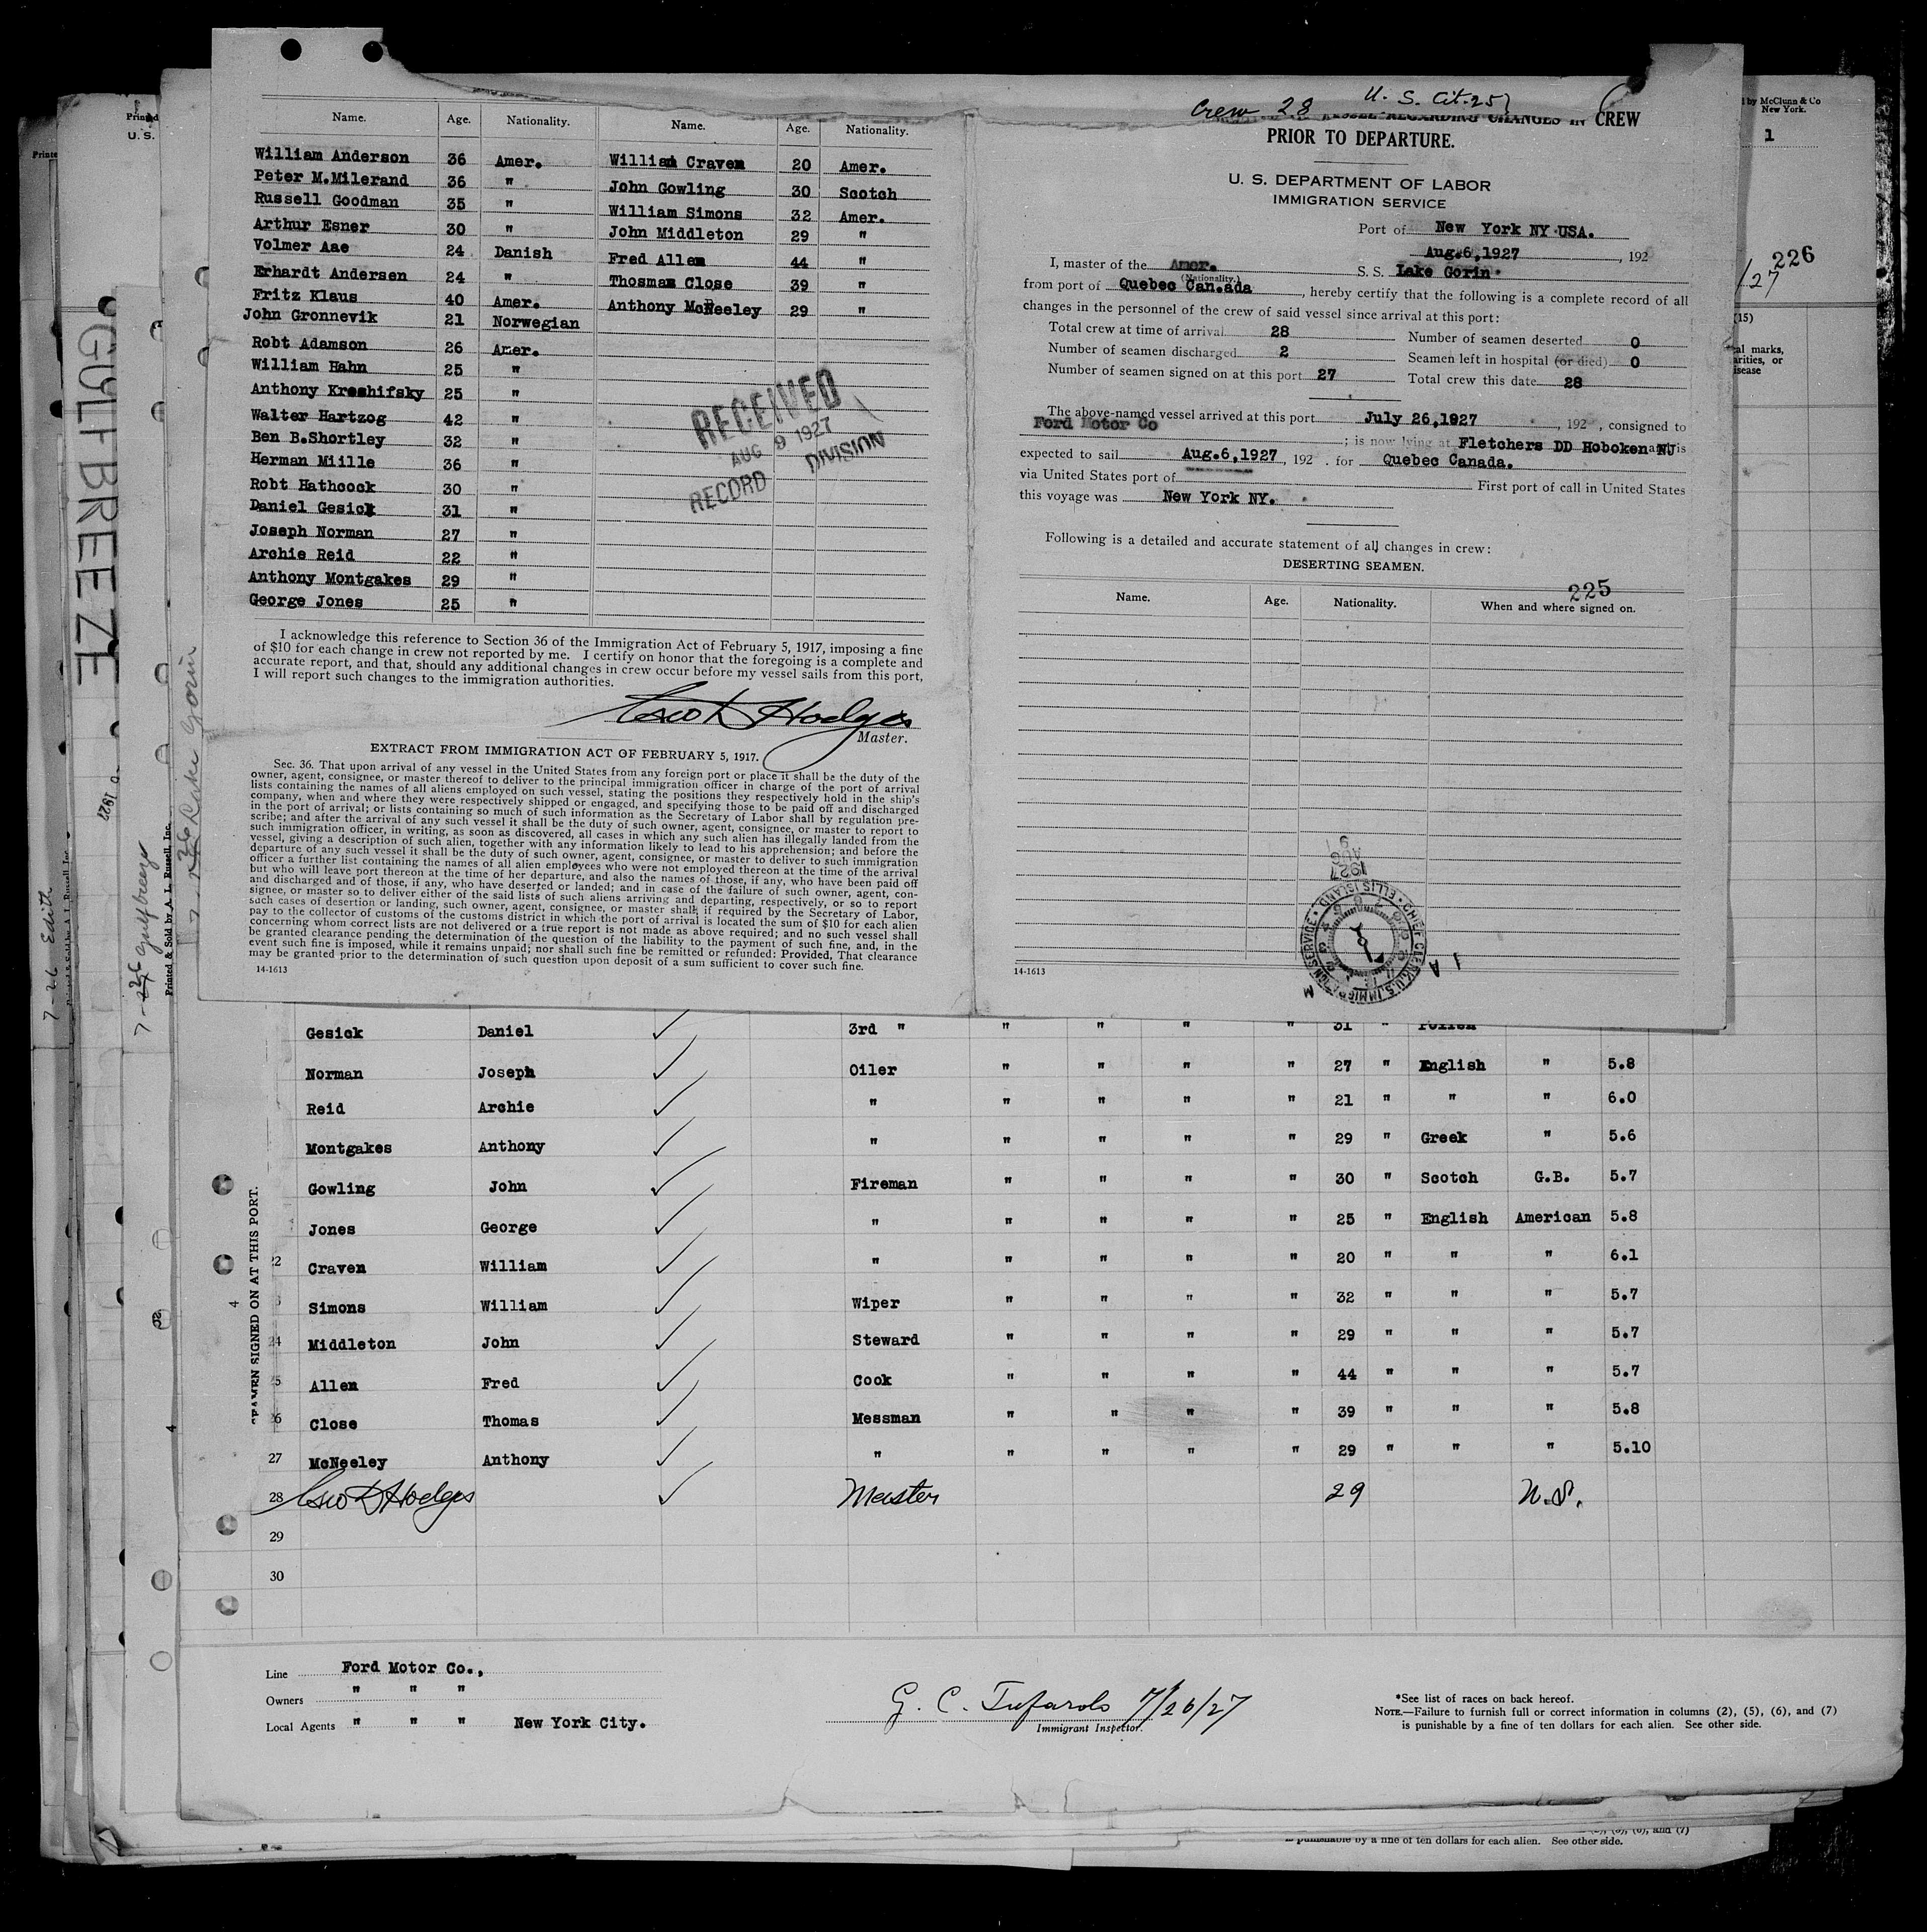 Crew 28 U. S. Cit. 25
REGARDING CHANGES IN CREW
PRIOR TO DEPARTURE.
U. S. DEPARTMENT OF LABOR
IMMIGRATION SERVICE
Port of New York NY USA.
Aug.6,1927, 192
I, master of the Amer. S. S. Lake Gorin
(Nationality.)
from port of Quebec Can.ada, hereby certify that the following is a complete record of all
changes in the personnel of the crew of said vessel since arrival at this port:
Total crew at time of arrival 28 Number of seamen deserted 0
Number of seamen discharged 2 Seamen left in hospital (or died) 0
Number of seamen signed on at this port 27 Total crew this date 28
The above-named vessel arrived at this port July 26,1927, 192 , consigned to
Ford Motor Co
; is now lying at Fletchers DD Hoboken NJ and is
expected to sail Aug.6,1927, 192 . for Quebec Canada.
via United States port of First port of call in United States
this voyage was New York NY.
Following is a detailed and accurate statement of all changes in crew:
DESERTING SEAMEN.
225
Name. Age. Nationality. When and where signed on.
14-1613
Name. Age. Nationality. Name. Age. Nationality.
William Anderson 36 Amer. William Craven 20 Amer.
Peter M.Milerand 36 " John Gowling 30 Scotch
Russell Goodman 35 " William Simons 32 Amer.
Arthur Esner 30 " John Middleton 29 "
Volmer Aae 24 Danish Fred Allen 44 "
Erhardt Andersen 24 " Thosmas Close 39 "
Fritz Klaus 40 Amer. Anthony McNeeley 29 "
John Gronnevik 21 Norwegian
Robt Adamson 26 Amer.
William Hahn 25 "
Anthony Kreshifsky 25 "
Walter Hartzog 42 "
Ben B.Shortley 32 "
Herman Miille 36 "
Robt Hathcock 30 "
Daniel Gesick 31 "
Joseph Norman 27 "
Archie Reid 22 "
Anthony Montgakes 29 "
George Jones 25 "
RECEIVED
AUG 9 1927
RECORD DIVISION
I acknowledge this reference to Section 36 of the Immigration Act of February 5, 1917, imposing a fine
of $10 for each change in crew not reported by me. I certify on honor that the foregoing is a complete and
accurate report, and that, should any additional changes in crew occur before my vessel sails from this port,
I will report such changes to the immigration authorities.
Hodges
Master.
EXTRACT FROM IMMIGRATION ACT OF FEBRUARY 5, 1917.
Sec. 36. That upon arrival of any vessel in the United States from any foreign port or place it shall be the duty of the
owner, agent, consignee, or master thereof to deliver to the principal immigration officer in charge of the port of arrival
lists containing the names of all aliens employed on such vessel, stating the positions they respectively hold in the ship's
company, when and where they were respectively shipped or engaged, and specifying those to be paid off and discharged
in the port of arrival; or lists containing so much of such information as the Secretary of Labor shall by regulation pre-
scribe; and after the arrival of any such vessel it shall be the duty of such owner, agent, consignee, or master to report to
such immigration officer, in writing, as soon as discovered, all cases in which any such alien has illegally landed from the
vessel, giving a description of such alien, together with any information likely to lead to his apprehension; and before the
departure of any such vessel it shall be the duty of such owner, agent, consignee, or master to deliver to such immigration
officer a further list containing the names of all alien employees who were not employed thereon at the time of the arrival
but who will leave port thereon at the time of her departure, and also the names of those, if any, who have been paid off
and discharged and of those, if any, who have deserted or landed; and in case of the failure of such owner, agent, con-
signee, or master so to deliver either of the said lists of such aliens arriving and departing, respectively, or so to report
such cases of desertion or landing, such owner, agent, consignee, or master shall, if required by the Secretary of Labor,
pay to the collector of customs of the customs district in which the port of arrival is located the sum of $10 for each alien
concerning whom correct lists are not delivered or a true report is not made as above required; and no such vessel shall
be granted clearance pending the determination of the question of the liability to the payment of such fine, and, in the
event such fine is imposed, while it remains unpaid; nor shall such fine be remitted or refunded: Provided, That clearance
may be granted prior to the determination of such question upon deposit of a sum sufficient to cover such fine.
14-1613
1927
AUG
CHIEF CLERK, U.S. IMMIGRATION SERVICE • ELLIS ISLAND
by McClunn & Co
New York.
1
226
/27
(15)
GULFBREEZE
7-26 Gulfbreeze
7-26 Lake Gorin
7-26 Edith
Printed & Sold by A. L. Russell, Inc.
SEAMEN SIGNED ON AT THIS PORT.
4
Gesick Daniel 3rd " " " " " 31 "
Norman Joseph Oiler " " " " 27 " English " 5.8
Reid Archie " " " " " 21 " " " 6.0
Montgakes Anthony " " " " " 29 " Greek " 5.6
Gowling John Fireman " " " " 30 " Scotch G.B. 5.7
Jones George " " " " " 25 " English American 5.8
22 Craven William " " " " " 20 " " " 6.1
Simons William Wiper " " " " 32 " " " 5.7
24 Middleton John Steward " " " " 29 " " " 5.7
25 Allen Fred Cook " " " " 44 " " " 5.7
26 Close Thomas Messman " " " " 39 " " " 5.8
27 McNeeley Anthony " " " " " 29 " " " 5.10
28 Hodges Master 29 U.S.
29
30
Line Ford Motor Co.,
Owners " " "
Local Agents " " " New York City.
G. C. 7/26/27
Immigrant Inspector.
*See list of races on back hereof.
NOTE.—Failure to furnish full or correct information in columns (2), (5), (6), and (7)
is punishable by a fine of ten dollars for each alien. See other side.
is punishable by a fine of ten dollars for each alien. See other side.